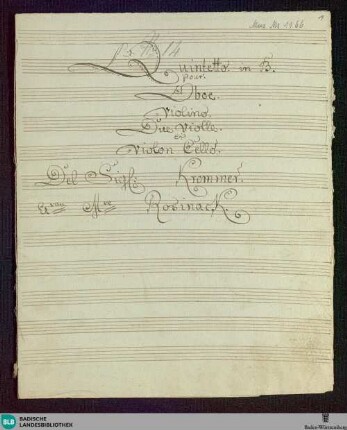 Mus. Ms. 1266
1
Quintetto in B.
pour.
Oboe.
Violino.
Due Violle.
Violon Cello.
Del Sig: Krommer.
Rosinack.
BLB BADISCHE
LANDESBIBLIOTHEK
Baden-Württemberg